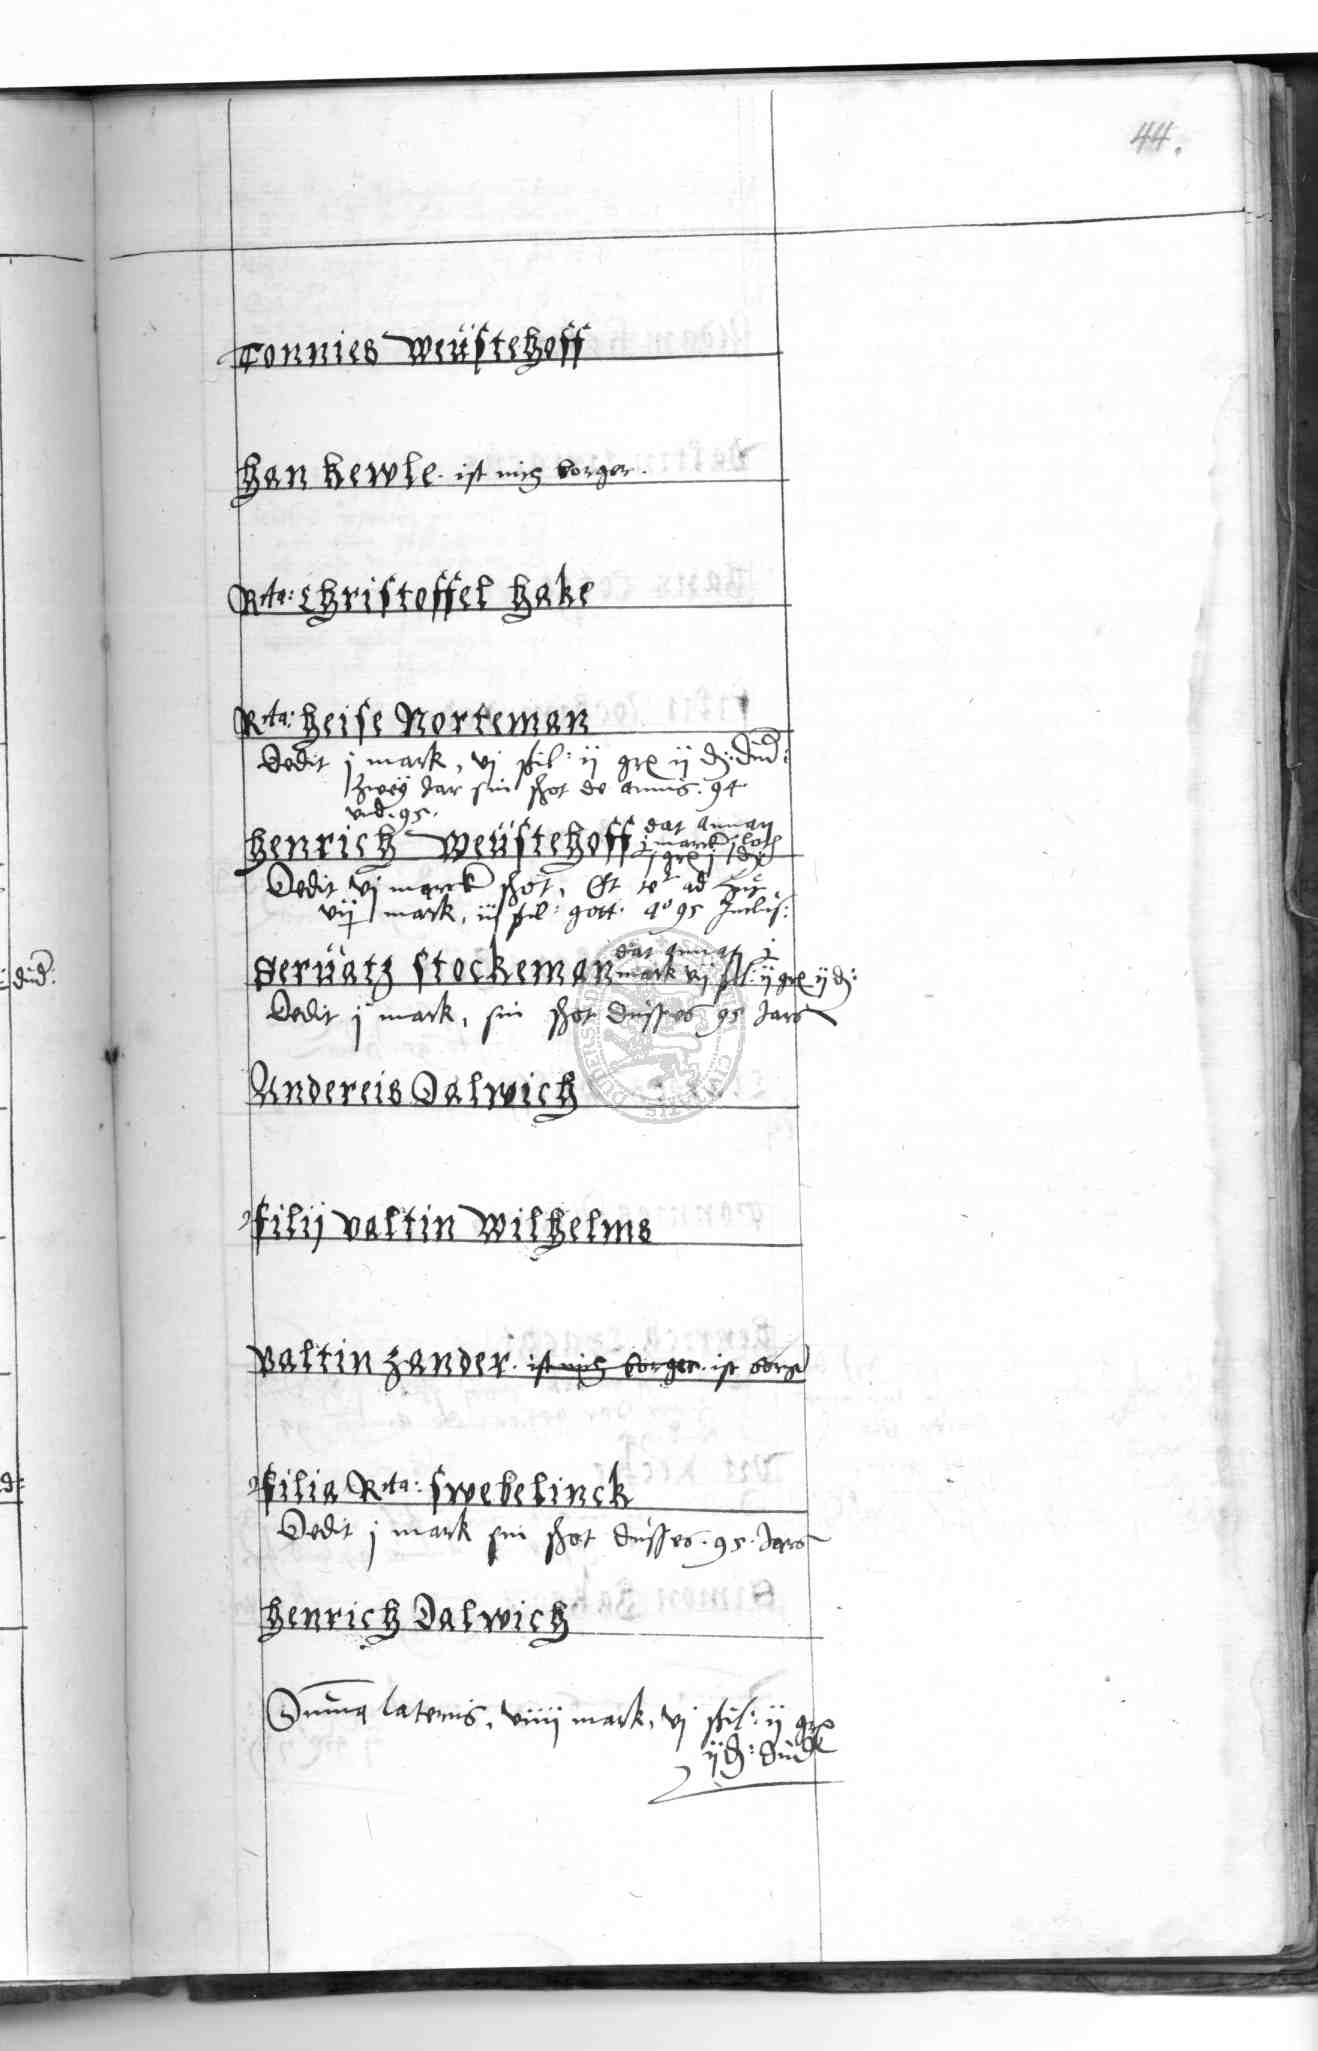 44.
Tonnies Weüstehoff
Han Kewle. ist nich borger.
Rcta: Christoffel Hake
Rcta: Heise Norteman
Dedit j mark, vj ßil: ij grx ij d: düd:
zwey Jar sin shot de annis. 94
vnd. 95.
Henrich Weüstehoff dat annan
j marck j loth
j grx j d
Dedit vj marck shot, Et ad
vij mark, iij ßil: gott. Ao 95 Inclus:
Serüatz Stockeman dat annan j
mark vj ßil: ij grx ij d:
Dedit j mark, sin shot düsses 95 Jars
Andereis Dalwich
filij Valtin Wilhelms
Valtin Zander. ist nich borger. ist borger
filia Rcta: Swebelinck
Dedit j mark sin shot düsses. 95. Jars
Henrich Dalwich
Summa lateris, viiij mark, vj ßil: ij grx
ij d: düd
düd:
d:
CIVITATIS DUDERSTAD